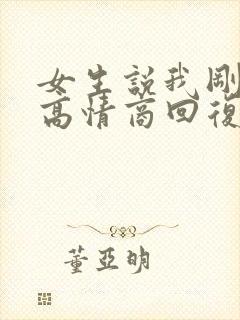 女生說我剛
高情商回復
董亚明